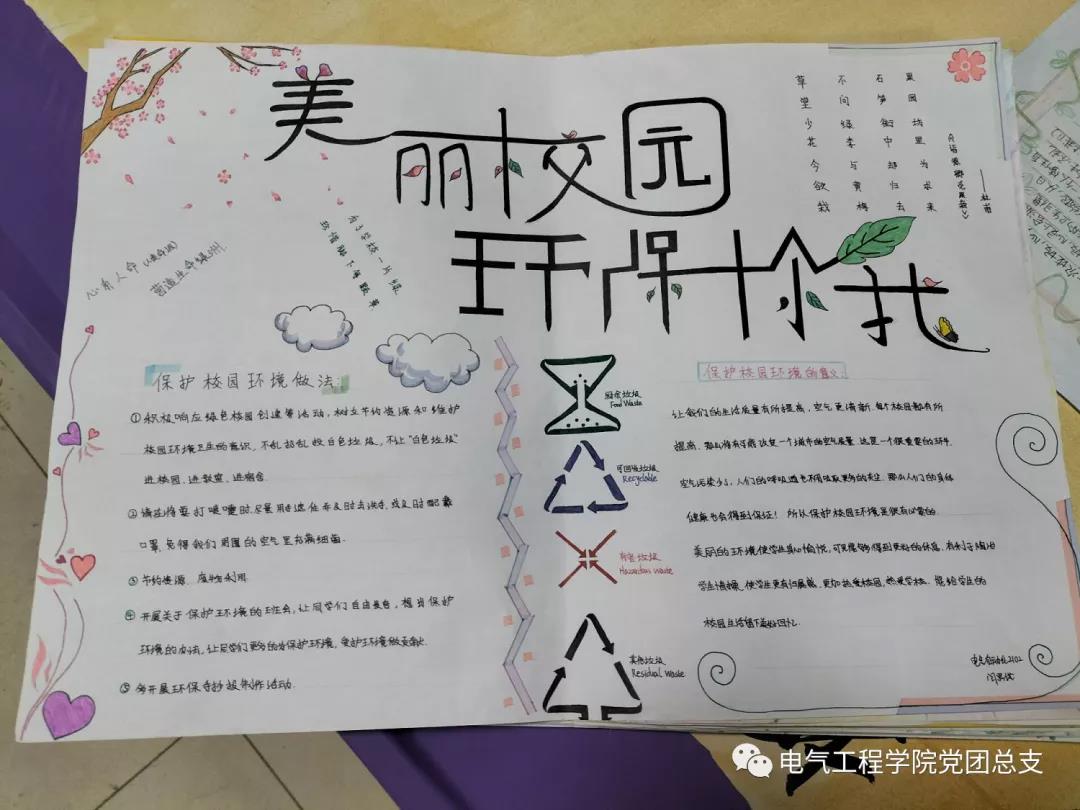 美丽校园
环保十你我
草堂少花今欲栽
不问绿李与黄梅
石笋街中却归去
果园坊里为求来
——杜甫
心有人命
营造生命绿洲.
保护校园环境做法:
①积极响应绿色校园创建等活动,树立节约资源和维护
校园环境卫生的意识,不乱扔乱投白色垃圾,不让"白色垃圾"
进校园、进教室、进宿舍.
②情绪将要打喷嚏时,尽量用手遮住并及时去洗手,或及时配戴
口罩,免得我们周围的空气里充满细菌.
③节约资源、废物利用.
④开展关于保护环境的班会,让同学们自由发言,想出保护
环境的办法,让同学们更多的为保护环境,爱护环境做贡献.
⑤多开展环保手抄报制作活动.
厨余垃圾
Food Waste
可回收垃圾
Recyclable
有害垃圾
Hazardous waste
其他垃圾
Residual waste
保护校园环境的意义:
让我们的生活质量有所提高,空气更清新.每个校园都有所
提高,那么将有可能改变一个城市的空气质量.这是一个很重要的环节.
空气污染少了,人们的呼吸道也不用吸取更多的灰尘.那么人们的身体
健康也会得到保证!所以保护校园环境是很有必要的.
美丽的环境使学生身心愉悦,可以能够得到更好的休息,有利于陶冶
学生情操,使学生更有归属感,更加热爱校园,热爱学校.留给学生的
校园生活留下美好回忆.
电气自动化2102
电气工程学院党团总支